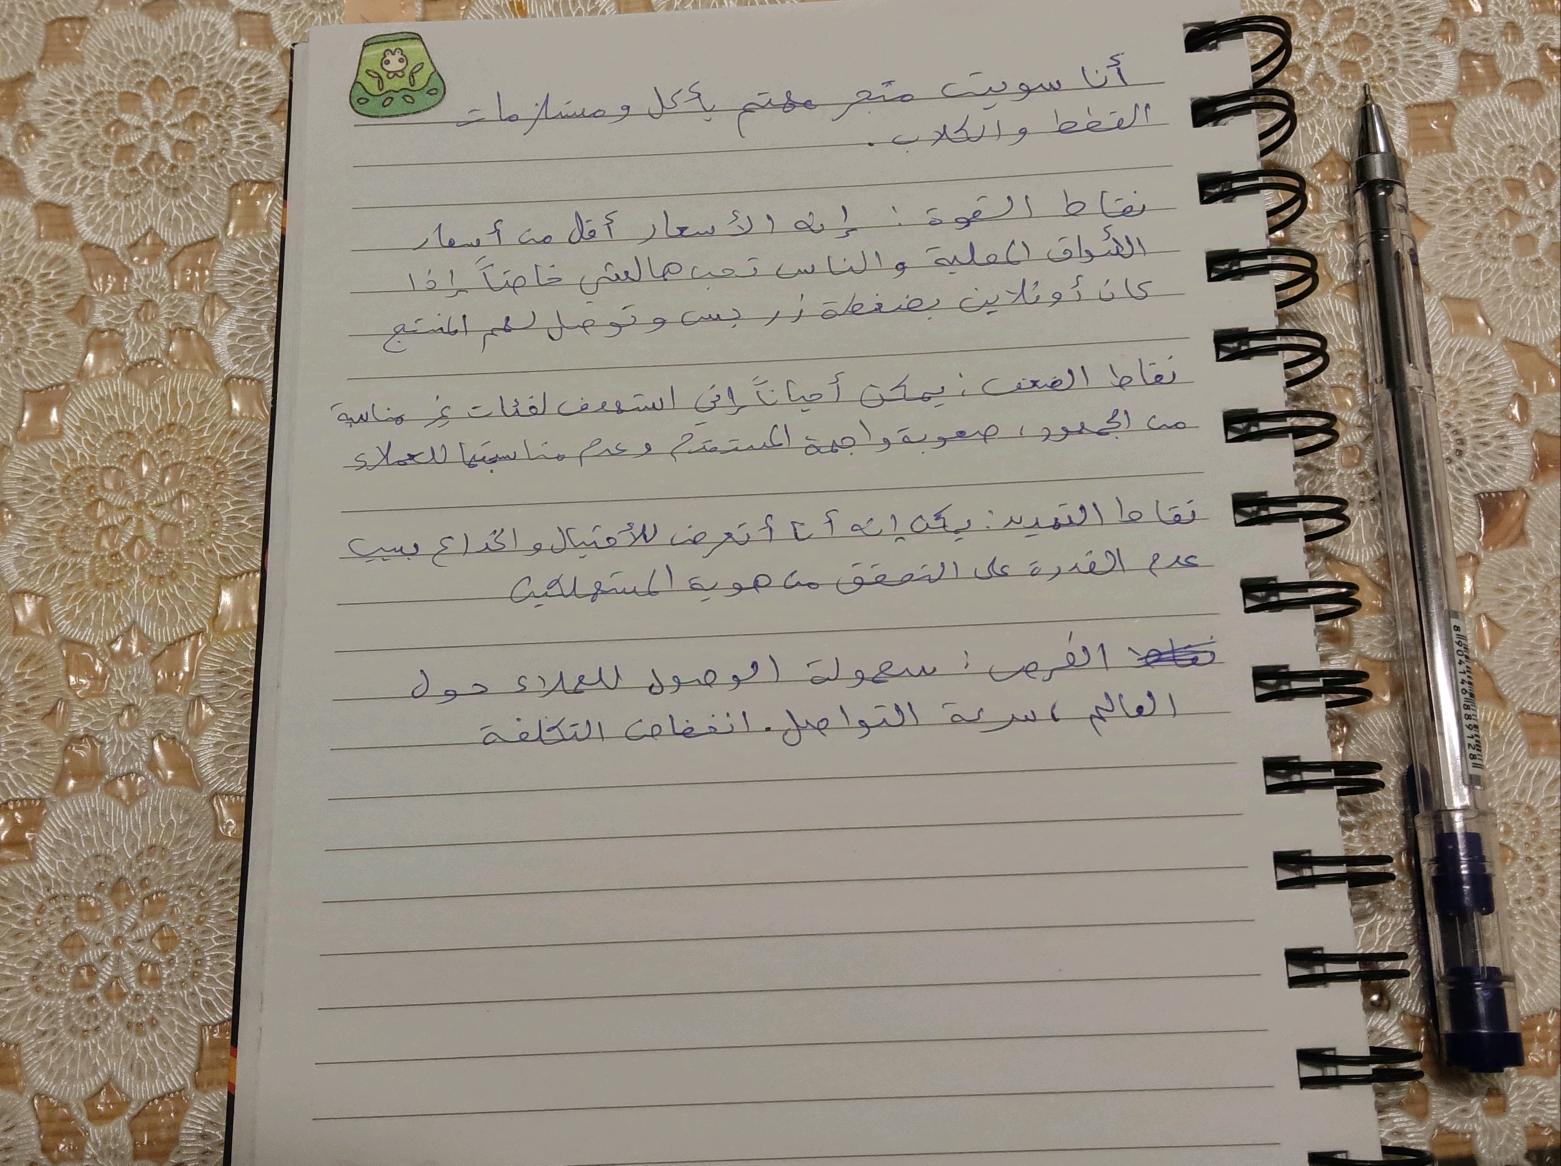 أنا سويت متجر مهتم بأكل ومستلزمات
القطط والكلاب.
نقاط القوة: إنه الأسعار أقل من أسعار
الأسواق المحلية والناس تحب هالشي خاصتاً إذا
كان أونلاين بضغطة زر بس وتوصل لهم المنتج
نقاط الضعف: يمكن أحياناً إني استهدف لفئات غير مناسبة
من الجمهور، صعوبة واجهة المستخدم وعدم مناسبتها للعملاء
نقاط التهديد: يمكن إنه أنا أتعرض للأحتيال والخداع بسبب
عدم القدرة على التحقق من هوية المستهلكين
الفُرص: سهولة الوصول للعملاء حول
العالم، سرعة التواصل. انخفاض التكلفة
8904146889128